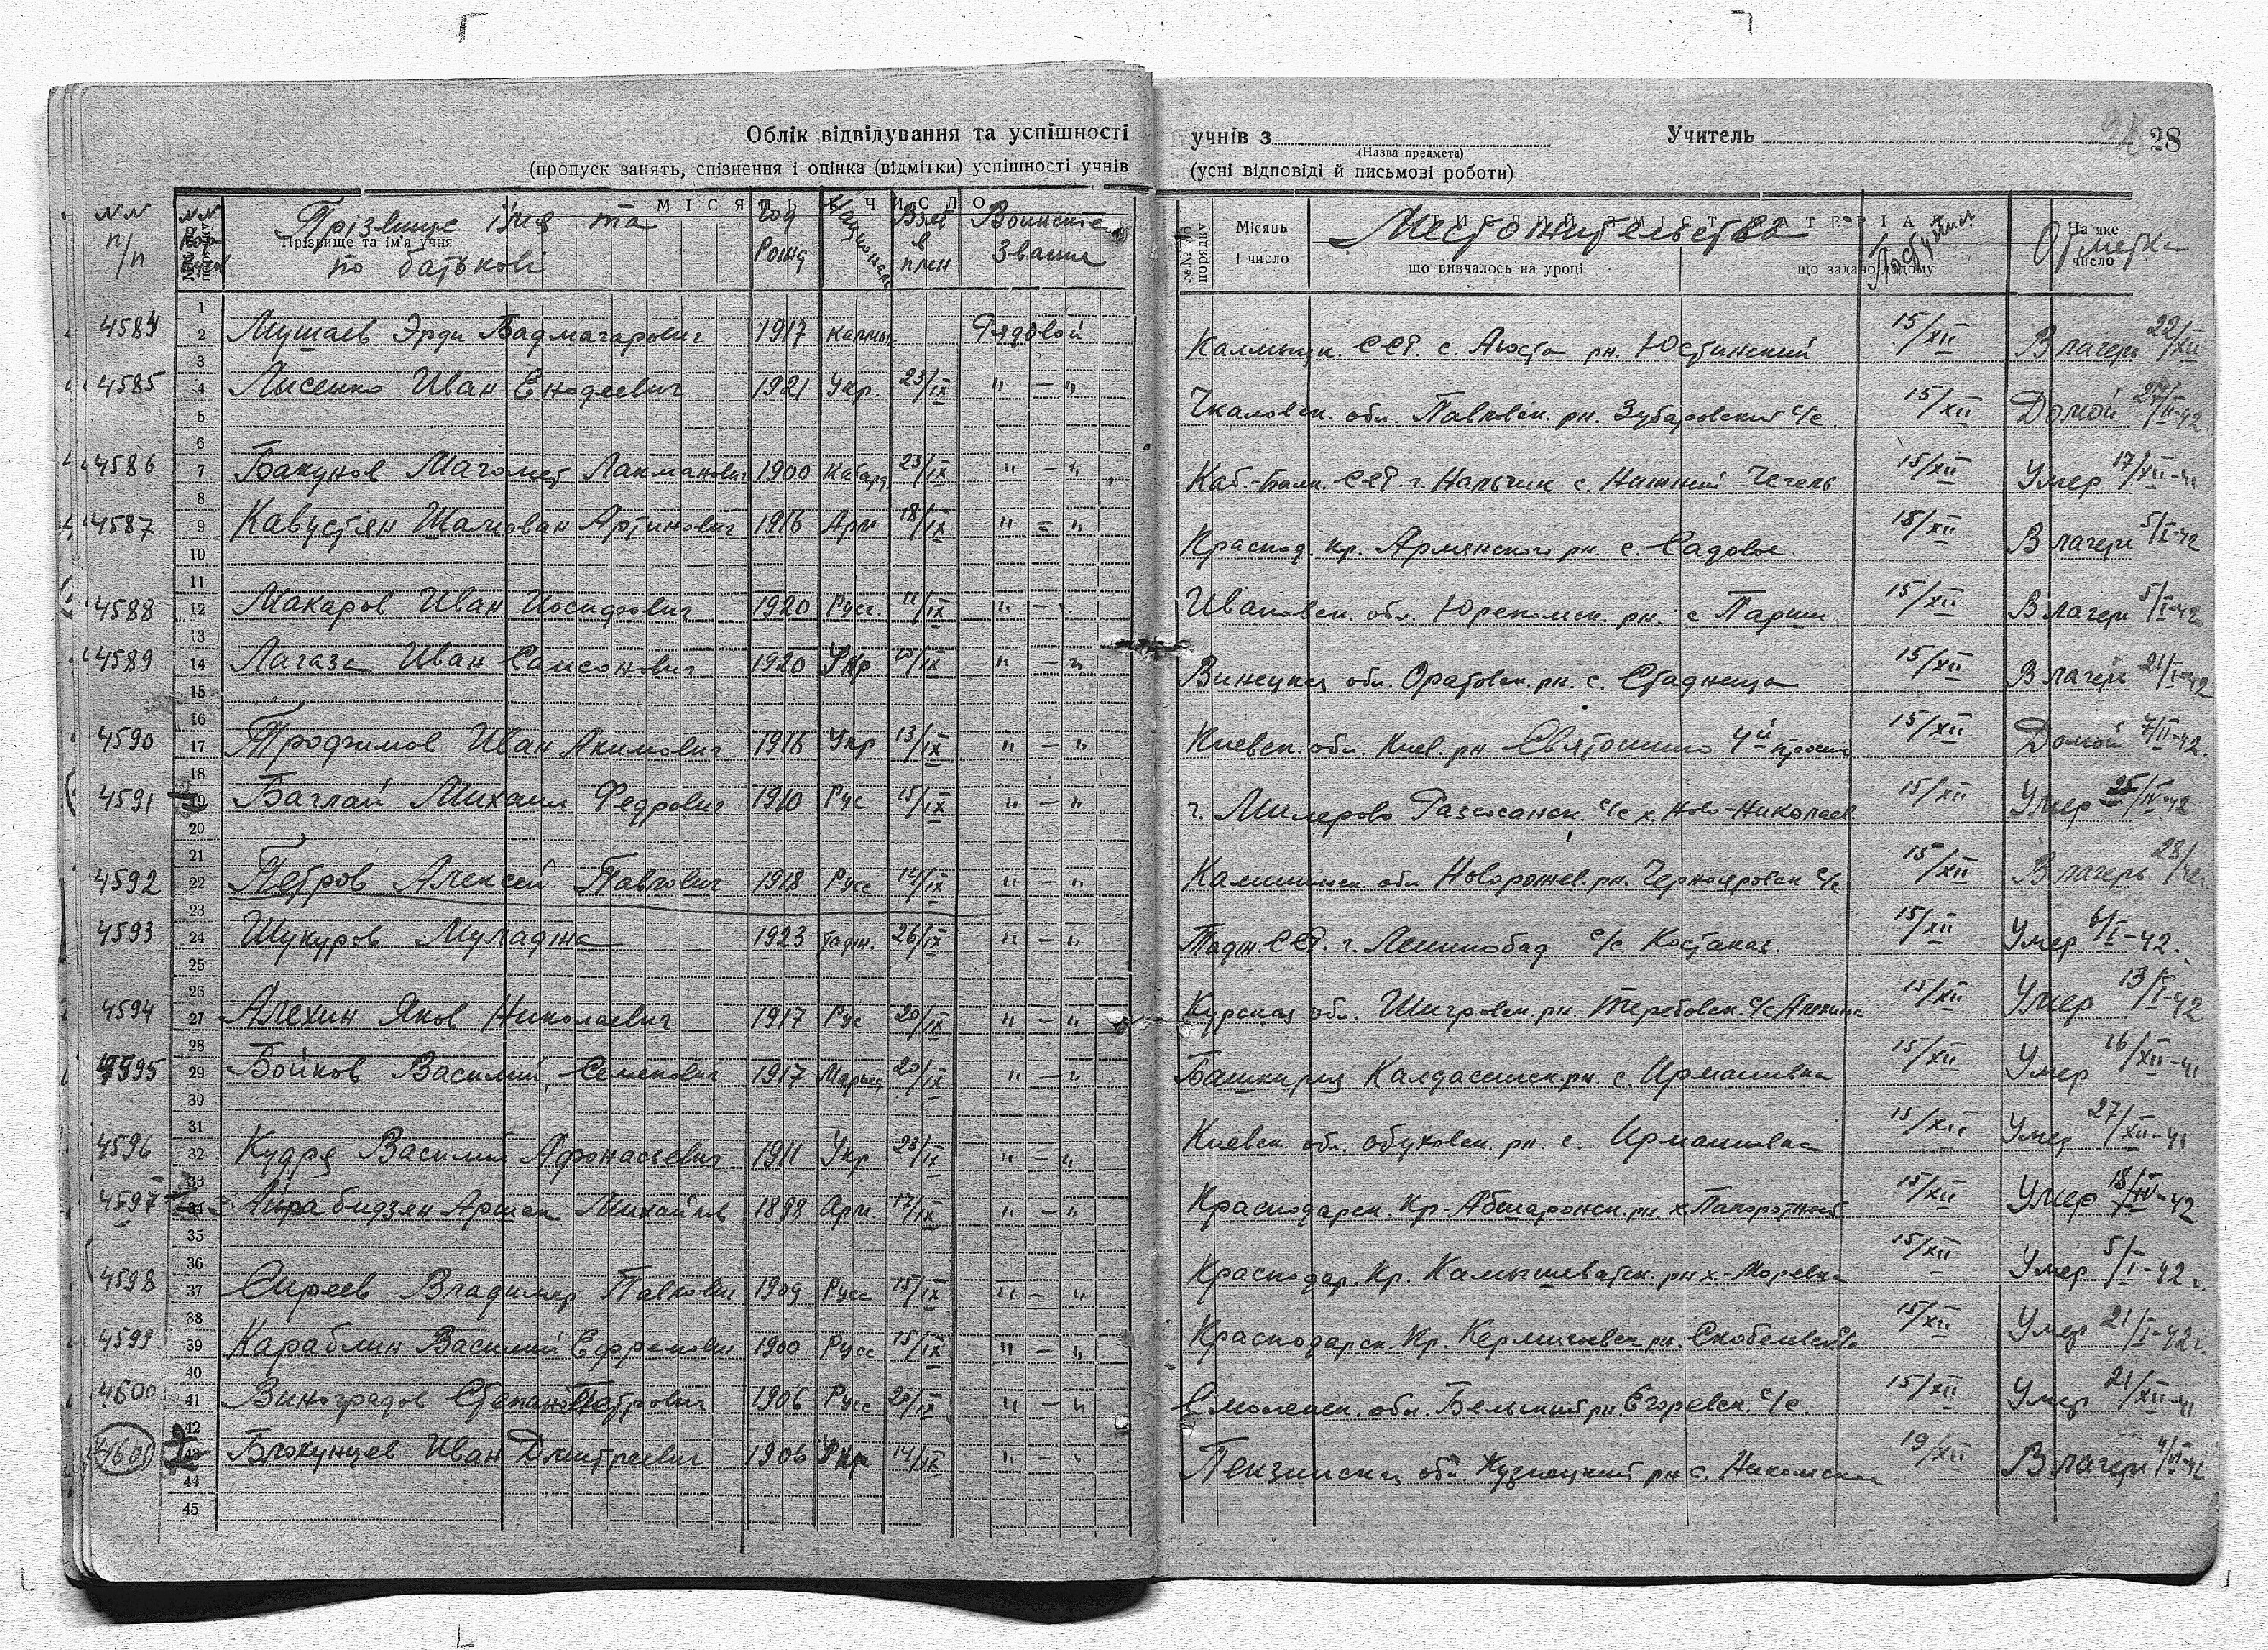 Облік відвідування та успішності
учнів з
(Назва предмета)
Учитель
28
(пропуск занять, спізнення і оцінка (відмітки) успішності учнів
(усні відповіді й письмові роботи)
NN п/п Прізвище імя та по батькові Год рожд Взят в плен Воинское Звание Местожительства Поступил Отметка
Прізвище та ім'я учня
Місяць і число
що вивчалось на уроці
що задано додому
На яке число
4584 Мушаев Эрди Бадмагарович 1917 калмык Рядовой Калмыцк. ССР. с. Аюста рн. Юстинский 15/XII В лагерь 22/XII
4585 Лисенко Иван 1921 Укр. 23/IX " — " Чкаловск. обл. Павловск. рн. Зубаровский с/с. 15/XII Домой 27/II-42.
4586 Бакунов Магомет Лакманович 1900 Кабард. 23/IX " — " Каб.-Балк. ССР. г. Нальчик с. Нижний Чегем 15/XII Умер 17/XII-41
4587 Кавустян Шалован Артинович 1916 Арм 18/IX " = " Краснод. кр. Армянского рн. с. Садовое. 15/XII В лагерь 5/I-42
4588 Макаров Иван Иосифович 1920 Русс. 11/IX " — " Ивановск. обл. Юрекомск. рн. с Парши 15/XII В лагерь 5/I-42
4589 Лагаза Иван Самсонович 1920 Укр " — " Винецкая обл. Оратовск. рн. с. Стадница 15/XII В лагерь 21/I-42
4590 Трофимов Иван Акимович 1916 Укр 13/IX " — " Киевск. обл. Киев. рн Святошино 4й просек 15/XII Домой 7/II-42.
4591 Баглай Михаил Федрович 1910 Рус 15/IX " — " г. Милерово с/с х. Ново-Николаев. 15/XII Умер 25/IV-42
4592 Петров Алексей Павлович 1918 Русс 14/IX " — " Калининск обл Новоржев. рн. Чернояровск с/с 15/XII В лагерь 28/
4593 Шукуров Муладжа 1923 Тадж. 26/IX " — " Тадж. ССР. г. Ленинобад с/с. Костакоз. 15/XII Умер 6/I-42.
4594 Алехин Яков Николаевич 1917 Рус 20/IX " — " Курская обл. Шигровск. рн. Теребовск. с/с Алехина 15/XII Умер 13/I-42
4595 Бойков Василий Семенович 1917 20/IX " — " Башкирия Калдасинск рн. с. Ирмашивка 15/XII Умер 16/XII-41
4596 Кудря Василий Афонасьевич 1911 Укр 23/IX " — " Киевск. обл. обуховск. рн. с. Ирмашивка 15/XII Умер 27/XII-41
4597 Айрабидзян Аршак Михайлов 1898 Арм. 17/IX " — " Краснодарск. Кр. Абшаронск. рн. х. Папоротный 15/XII Умер 18/IV-42
4598 Сиреев Владимер Павлович 1909 Русс 15/IX " — " Краснодар. Кр. Камышеватск. рн х- Моревка 15/XII Умер 5/I-42г.
4599 Караблин Василий Ефремович 1900 Русс 15/IX " — " Краснодарск. Кр. рн. Скобелевск с/с 15/XII Умер 21/I-42г.
4600 Виноградов Степан Петрович 1906 Русс 20/IX " — " Смоленск. обл. Бельский рн. Егоревск. с/с 15/XII Умер 21/XII-41
4601 Иван Дмитреевич 1906 Укр 14/IX " — " Пензинская обл Кузнецкий рн с. 19/XII В лагерь